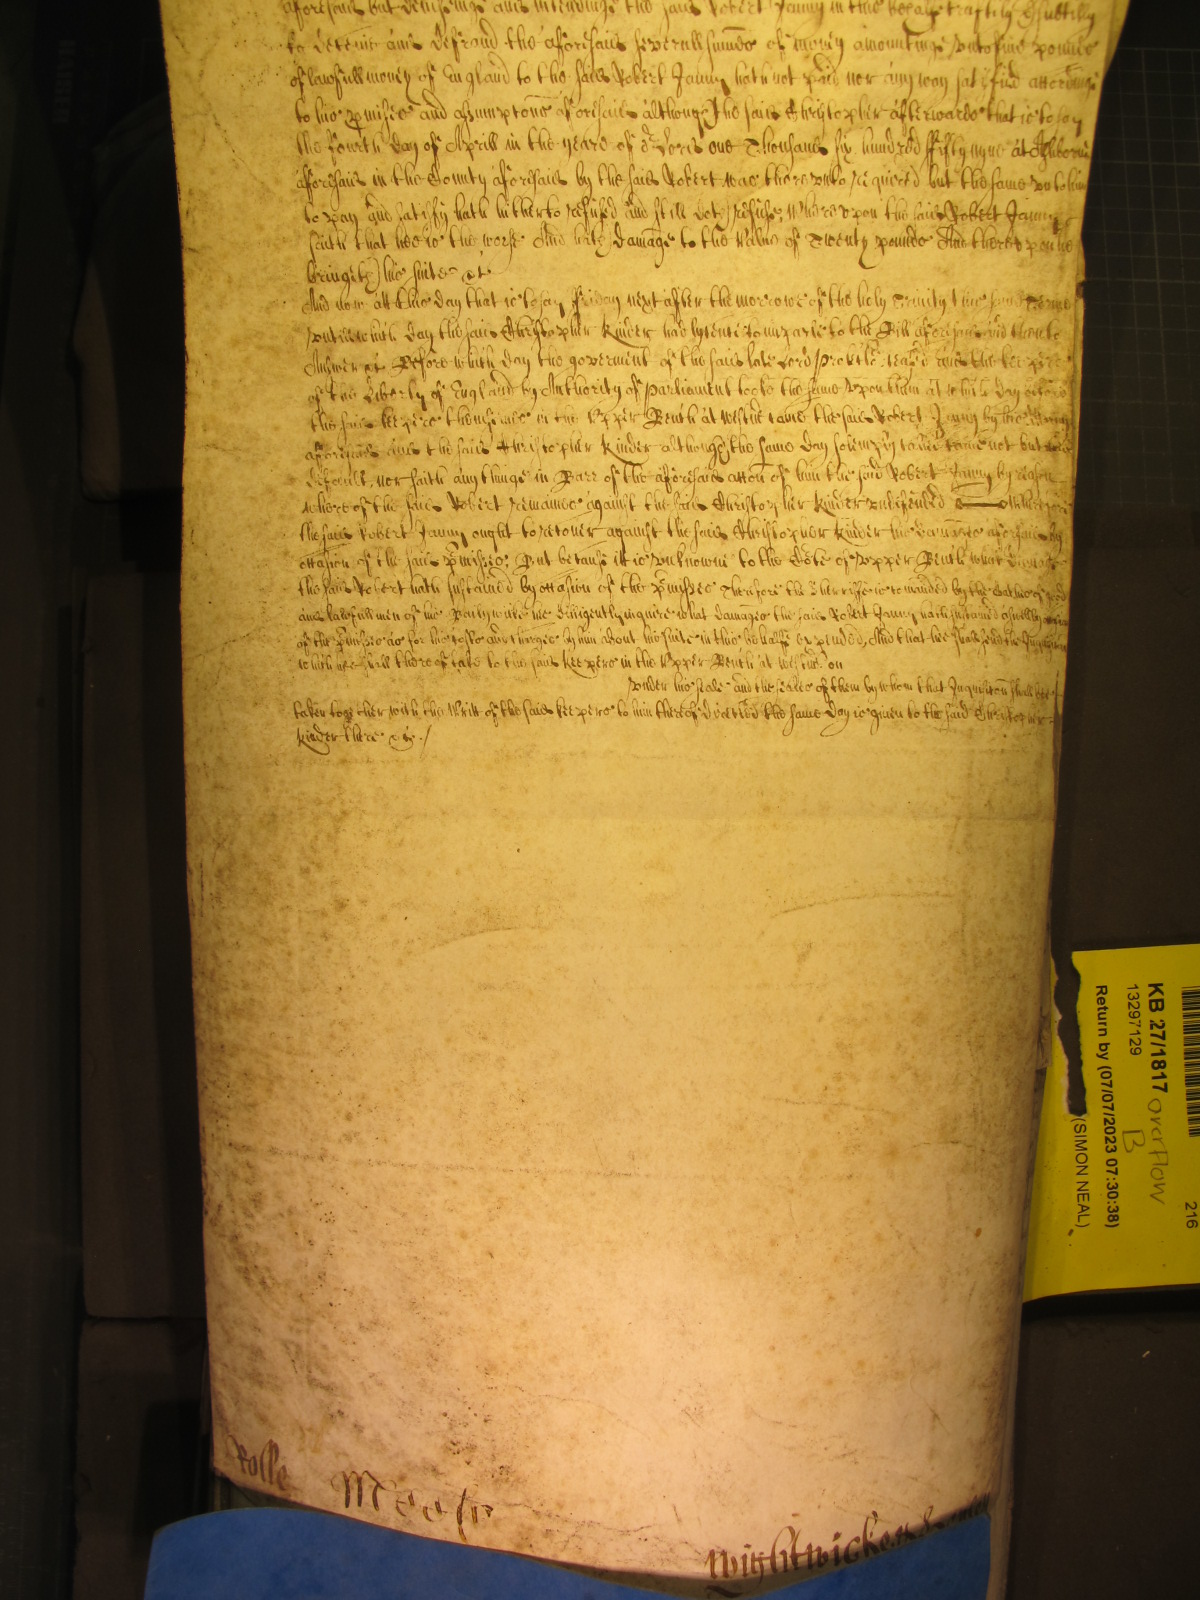 aforesaid but deviseinge and intendinge the said Robert Janny in this behalfe craftily & subtilly
to deceive and defraud the aforesaid severall summes of money amountinge unto five pounds
of lawfull money of England to the said Robert Janny hath not paid nor any way satisfied accordinge
to his pmises and assumptions aforesaid although the said Christopher afterwards that is to say
the fourth day of Aprill in the yeare of or Lord one Thousand six hundred fifty nyne at
aforesaid in the County aforesaid by the said Robert was thereunto required but the same unto him
to pay and satisfy hath hitherto refused and still doth refuse, Whereupon the said Robert Janny
saith that hee is the worse And hath damage to the Value of Twenty pounds And thereupon he
bringeth his suite &c
And now att this day that is to say Friday next after the morrowe of the holy Trinity this same Terme
untill which day the said Christopher Kinder had lycence to imparle to the Bill aforesaid and then to
Answer &c Before which day the goverment of the said late Lord Protector ceased and the keepers
of the Liberty of England by Authority of Parliament tooke the same upon them at which day before
the said keepers themselves in the Upper Bench at Westmr came the said Robert Janny by his Attorny
aforesaid and the said Christopher Kinder although the same day solempnly called came not but made
default, nor saith any thinge in Barr of the aforesaid accon of him the said Robert Janny by reason
whereof the said Robert remaines against the said Christopher Kinder undefended Wherefore
the said Robert Janny ought to recover against the said Christopher Kinder his damages aforesaid by
occasion of the said pmisses, But because it is unknowne to the Cort of Upper Bench what Damages
the said Robert hath sustained by occasion of the pmisses Therefore the Sherriffe is comanded by the oathes of good
and lawfull men of his Bailywicke he diligently inquire what damages the said Robert Janny hath sustained aswell by
of the pmisses as for his costs and charges by him about his suite in this behalfe expended, And that hee send the Inquisition
which hee shall thereof take to the said keepers in the Upper Bench at Westmr on
under his seale and the seales of them by whom that Inquisition shall bee
taken together with the Writt of the said keepers to him thereof directed the same day is given to the said Christopher
Kinder there &c./
Rolle
Wightwicke
KB 27/1817 overflow
B
13297129
Return by (07/07/2023 07:30:38)
(SIMON NEAL)
216